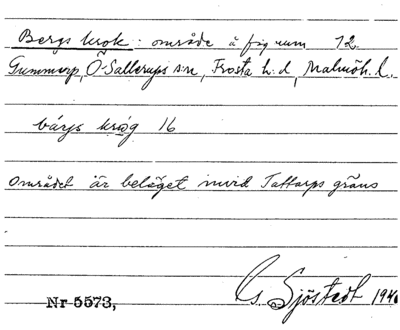 Bergs krok: område å fig rum 12.
Gummarp, Ö. Sallerups s:n, Frosta h:d, Malmöh. l.
bárys króg 16
Området är beläget invid Tattarps gräns
Nr 5573, G. Sjöstedt 1946